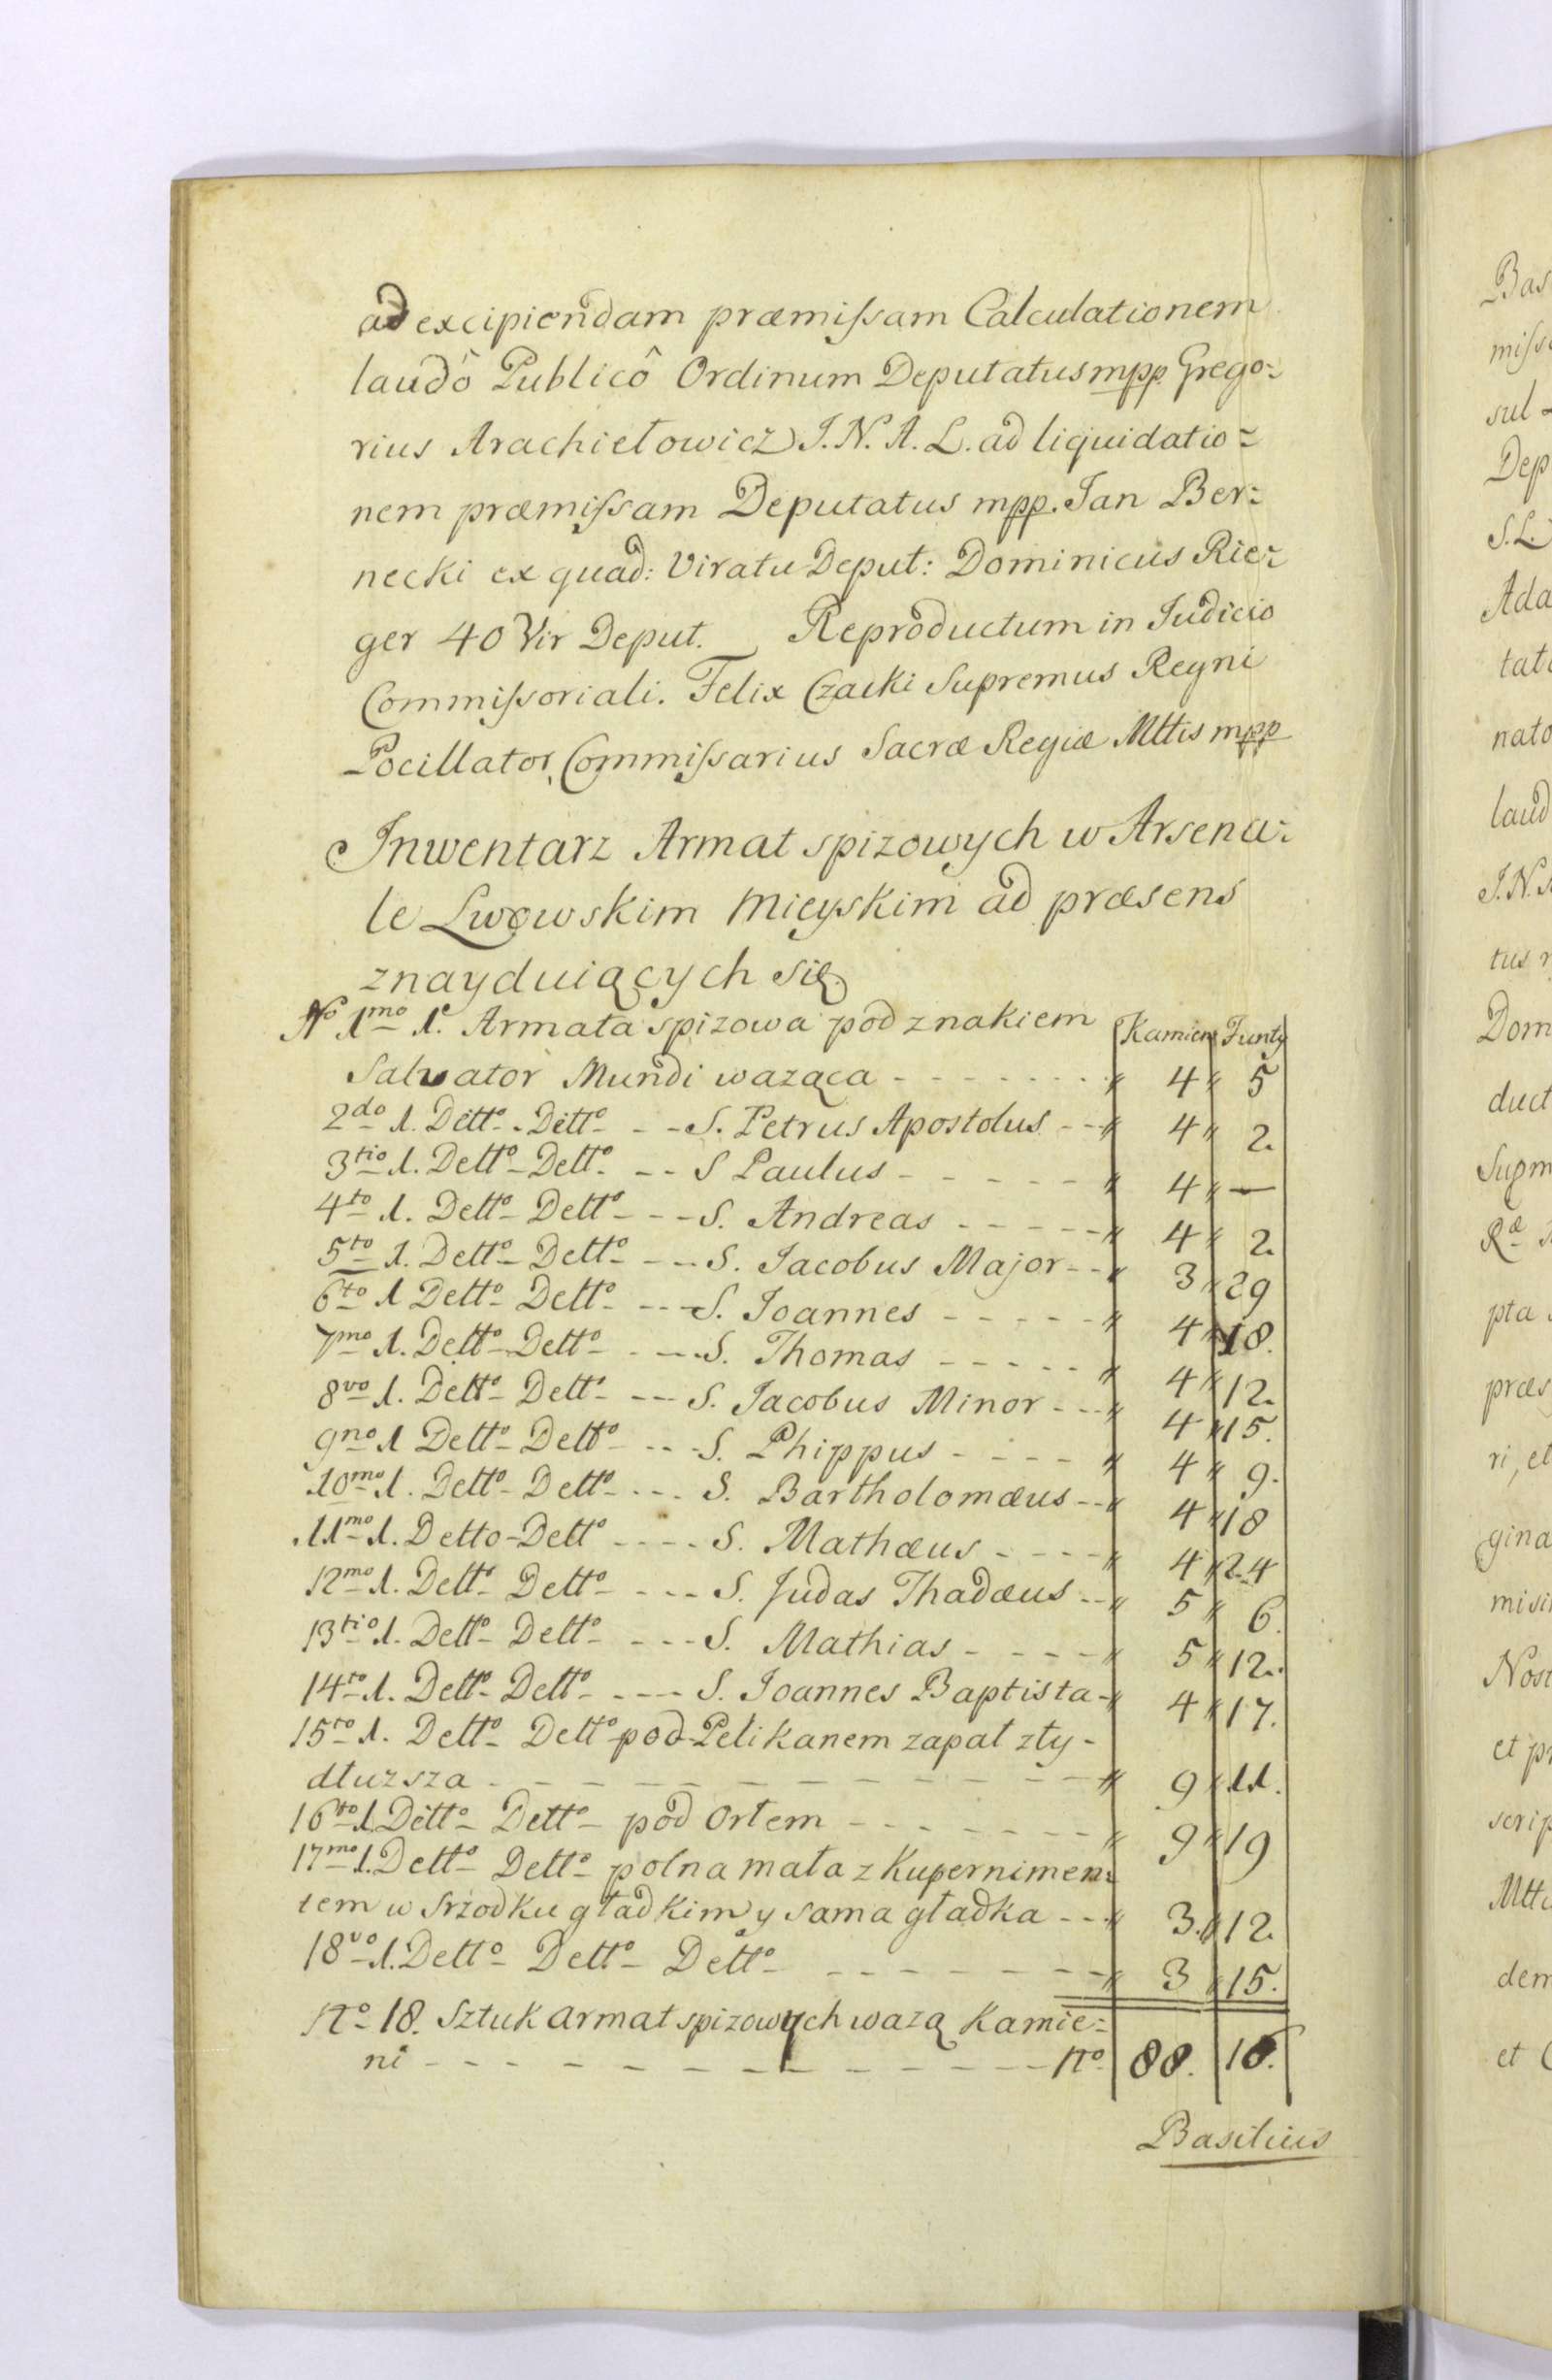 ad excipiendam præmissam Calculationem
laudô Publicô Ordinum Deputatus mpp Grego=
rius Arachiełowicz J. N. A. L. ad liquidatio=
nem præmissam Deputatus mpp. Jan Ber=
necki ex quad: Viratu Deput: Dominicus Rie=
ger 40 Vir Deput. Reproductum in Judicio
Commissoriali. Felix Czacki Supremus Regni
Pocillator, Commissarius Sacræ Regiæ Mttis mpp
Inwentarz Armat spizowych w Arsena=
le Lwowskim Mieyskim ad præsens
znayduiących się.
No 1mo 1. Armata spizowa pod znakiem Kamien Funty
Salvator Mundi waząca - - - - - - - 4 5
2do 1. Ditto - Ditto - - - S. Petrus Apostolus - - 4 2.
3tio 1. Detto - Detto - - - S Paulus - - - - - - 4 —
4to 1. Detto - Detto - - - S. Andreas - - - - - 4 2.
5to 1. Detto - Detto - - - S. Jacobus Major - - 3 29
6to 1 Detto - Detto - - - S. Joannes - - - - - 4 18.
7mo 1. Detto - Detto - - - S. Thomas - - - - - 4 12.
8vo 1. Detto - Detto - - - S. Jacobus Minor - - - 4 15.
9no 1 Detto - Detto - - - S. Phippus - - - - 4 9.
10mo 1. Detto - Detto - - - S. Bartholomæus - - 4 18
11mo 1. Detto - Detto - - - - S. Mathæus - - - - 4 24
12mo 1. Detto - Detto - - - S. Judas Thadæus - - 5 6.
13tio 1. Detto - Detto - - - S. Mathias - - - - 5 12.
14to 1. Detto - Detto - - - S. Joannes Baptista - 4 17.
15to 1. Detto - Detto - pod Pelikanem zapał zły -
dłuzsza - - - - - - - - - - - 9 11.
16to 1 Ditto - Detto - pod Orłem - - - - - - - 9 19
17mo 1. Detto - Detto - polna mała z Kupernimen=
tem w srzodku gładkim y sama gładka - - - 3. 12.
18vo 1. Detto - Detto - Detto - - - - - - - 3 15.
No 18. Sztuk armat spizowych wazą Kamie=
ni - - - - - - - - - - - No 88. 16.
Basilius
Bas
miss
sul
Dep
S. L.
Ada
tat
nato
laud
J. N.
tus
Dom
duct
Supm
Ræ
pta
præs
ri, et
gina
misi
Nost
et pr
scrip
Mtt
dem
et